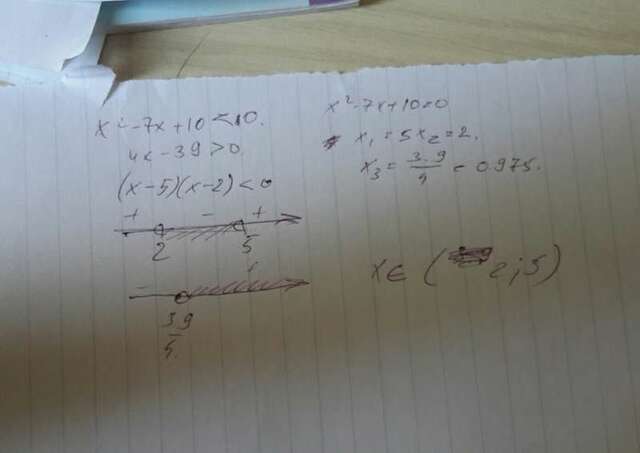 x²-7x+10<10.
4x-39>0
(x-5)(x-2)<0
+ - +
2 5
- +
39
4
x²-7x+10=0
x₁=5x₂=2.
x₃=3.9/4=0.975.
x∈(2;5)